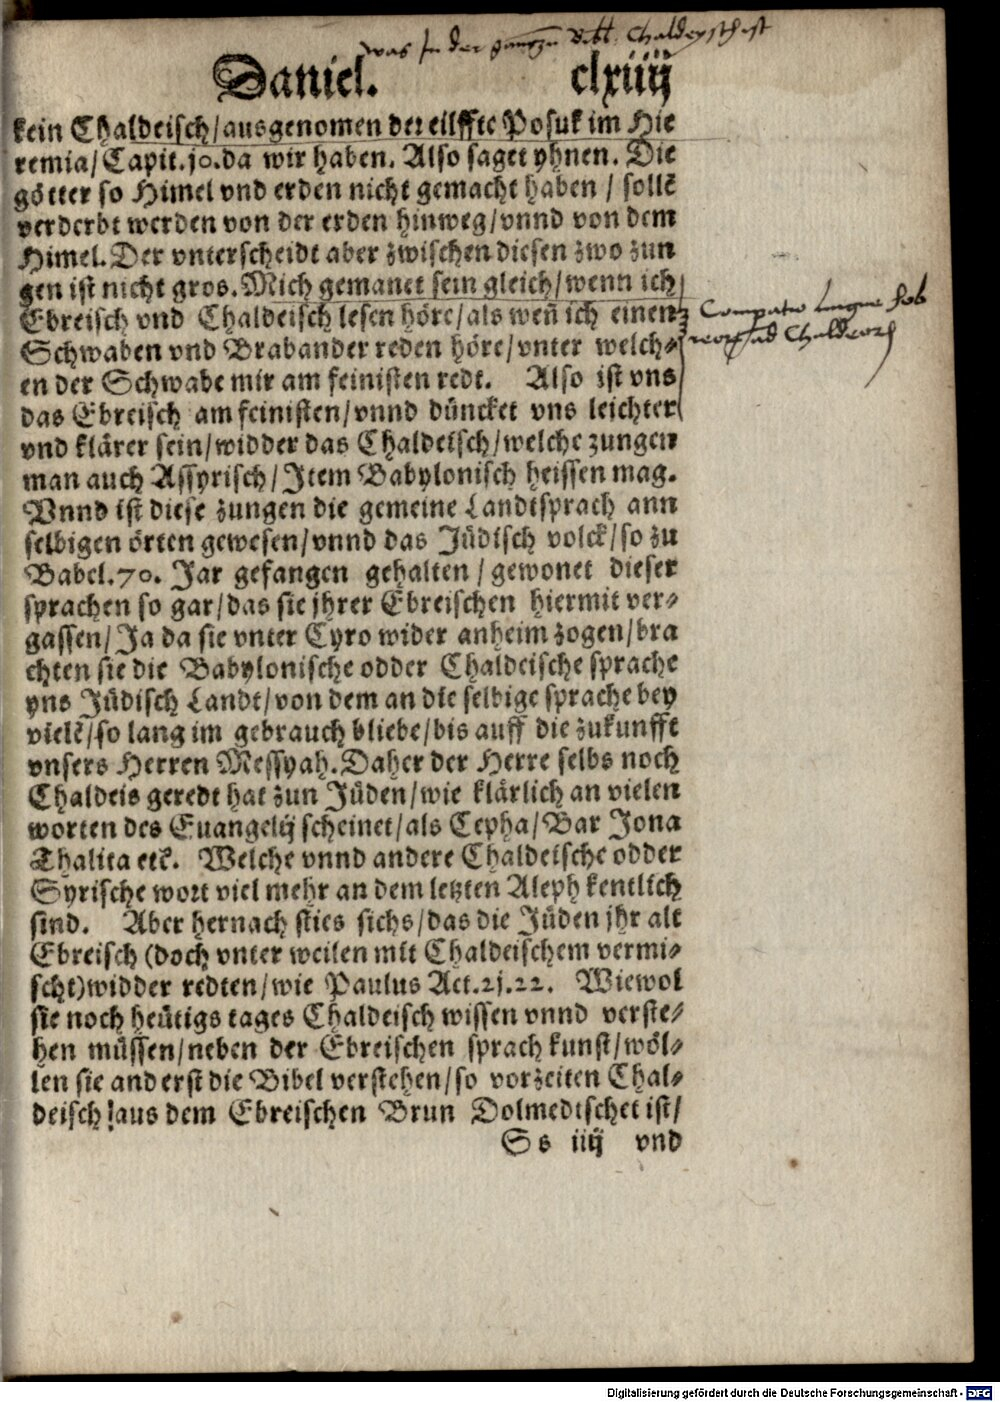 was in der gantzen Bibl. Chaldeysch ist
Daniel. clxiiij
kein Chaldeisch/ausgenomen der eilffte Posuk im Hie
remia/Capit.jo.da wir haben. Also saget yhnen. Die
götter so Himel vnd erden nicht gemacht haben / sollē
verderbt werden von der erden hinweg/vnnd von dem
Himel. Der vnterscheidt aber zwischen diesen zwo zun
gen ist nicht gros. Mich gemanet sein gleich/wenn ich
Ebreisch vnd Chaldeisch lesen höre/als weñ ich einen
Schwaben vnd Brabander reden höre/vnter welch⸗
en der Schwabe mir am feinisten redt. Also ist vns
das Ebreisch am feinisten/vnnd düncket vns leichter
vnd klärer sein/widder das Chaldeisch/welche zungen
man auch Assyrisch/Item Babylonisch heissen mag.
Vnnd ist diese zungen die gemeine Landtsprach ann
selbigen örten gewesen/vnnd das Jüdisch volck/so zu
Babel.70. Jar gefangen gehalten /gewonet dieser
sprachen so gar/das sie jhrer Ebreischen hiermit ver⸗
gassen/Ja da sie vnter Cyro wider anheim zogen/bra
chten sie die Babylonische odder Chaldeische sprache
yns Jüdisch Landt/von dem an die selbige sprache bey
vielē/so lang im gebrauch bliebe/bis auff die zukunfft
vnsers Herren Messyah. Daher der Herre selbs noch
Chaldeis geredt hat zun Jüden/wie klärlich an vielen
worten des Euangelij scheinet/als Cepha/Bar Jona
Thalita etc̄. Welche vnnd andere Chaldeische odder
Syrische wort viel mehr an dem letzten Aleph kentlich
sind. Aber hernach sties sichs/das die Jüden jhr alt
Ebreisch (doch vnter weilen mit Chaldeischem vermi⸗
scht)widder redten/wie Paulus Act.2j.22. Wiewol
sie noch heütigs tages Chaldeisch wissen vnnd verste⸗
hen müssen/neben der Ebreischen sprach kunst/wöl⸗
len sie anderst die Bibel verstehen/so vorzeiten Chal⸗
deisch!aus dem Ebreischen Brun Dolmedtschet ist/
Ss iiij vnd
Comparatio lingue
ad
Digitalisierung gefördert durch die Deutsche Forschungsgemeinschaft - DFG